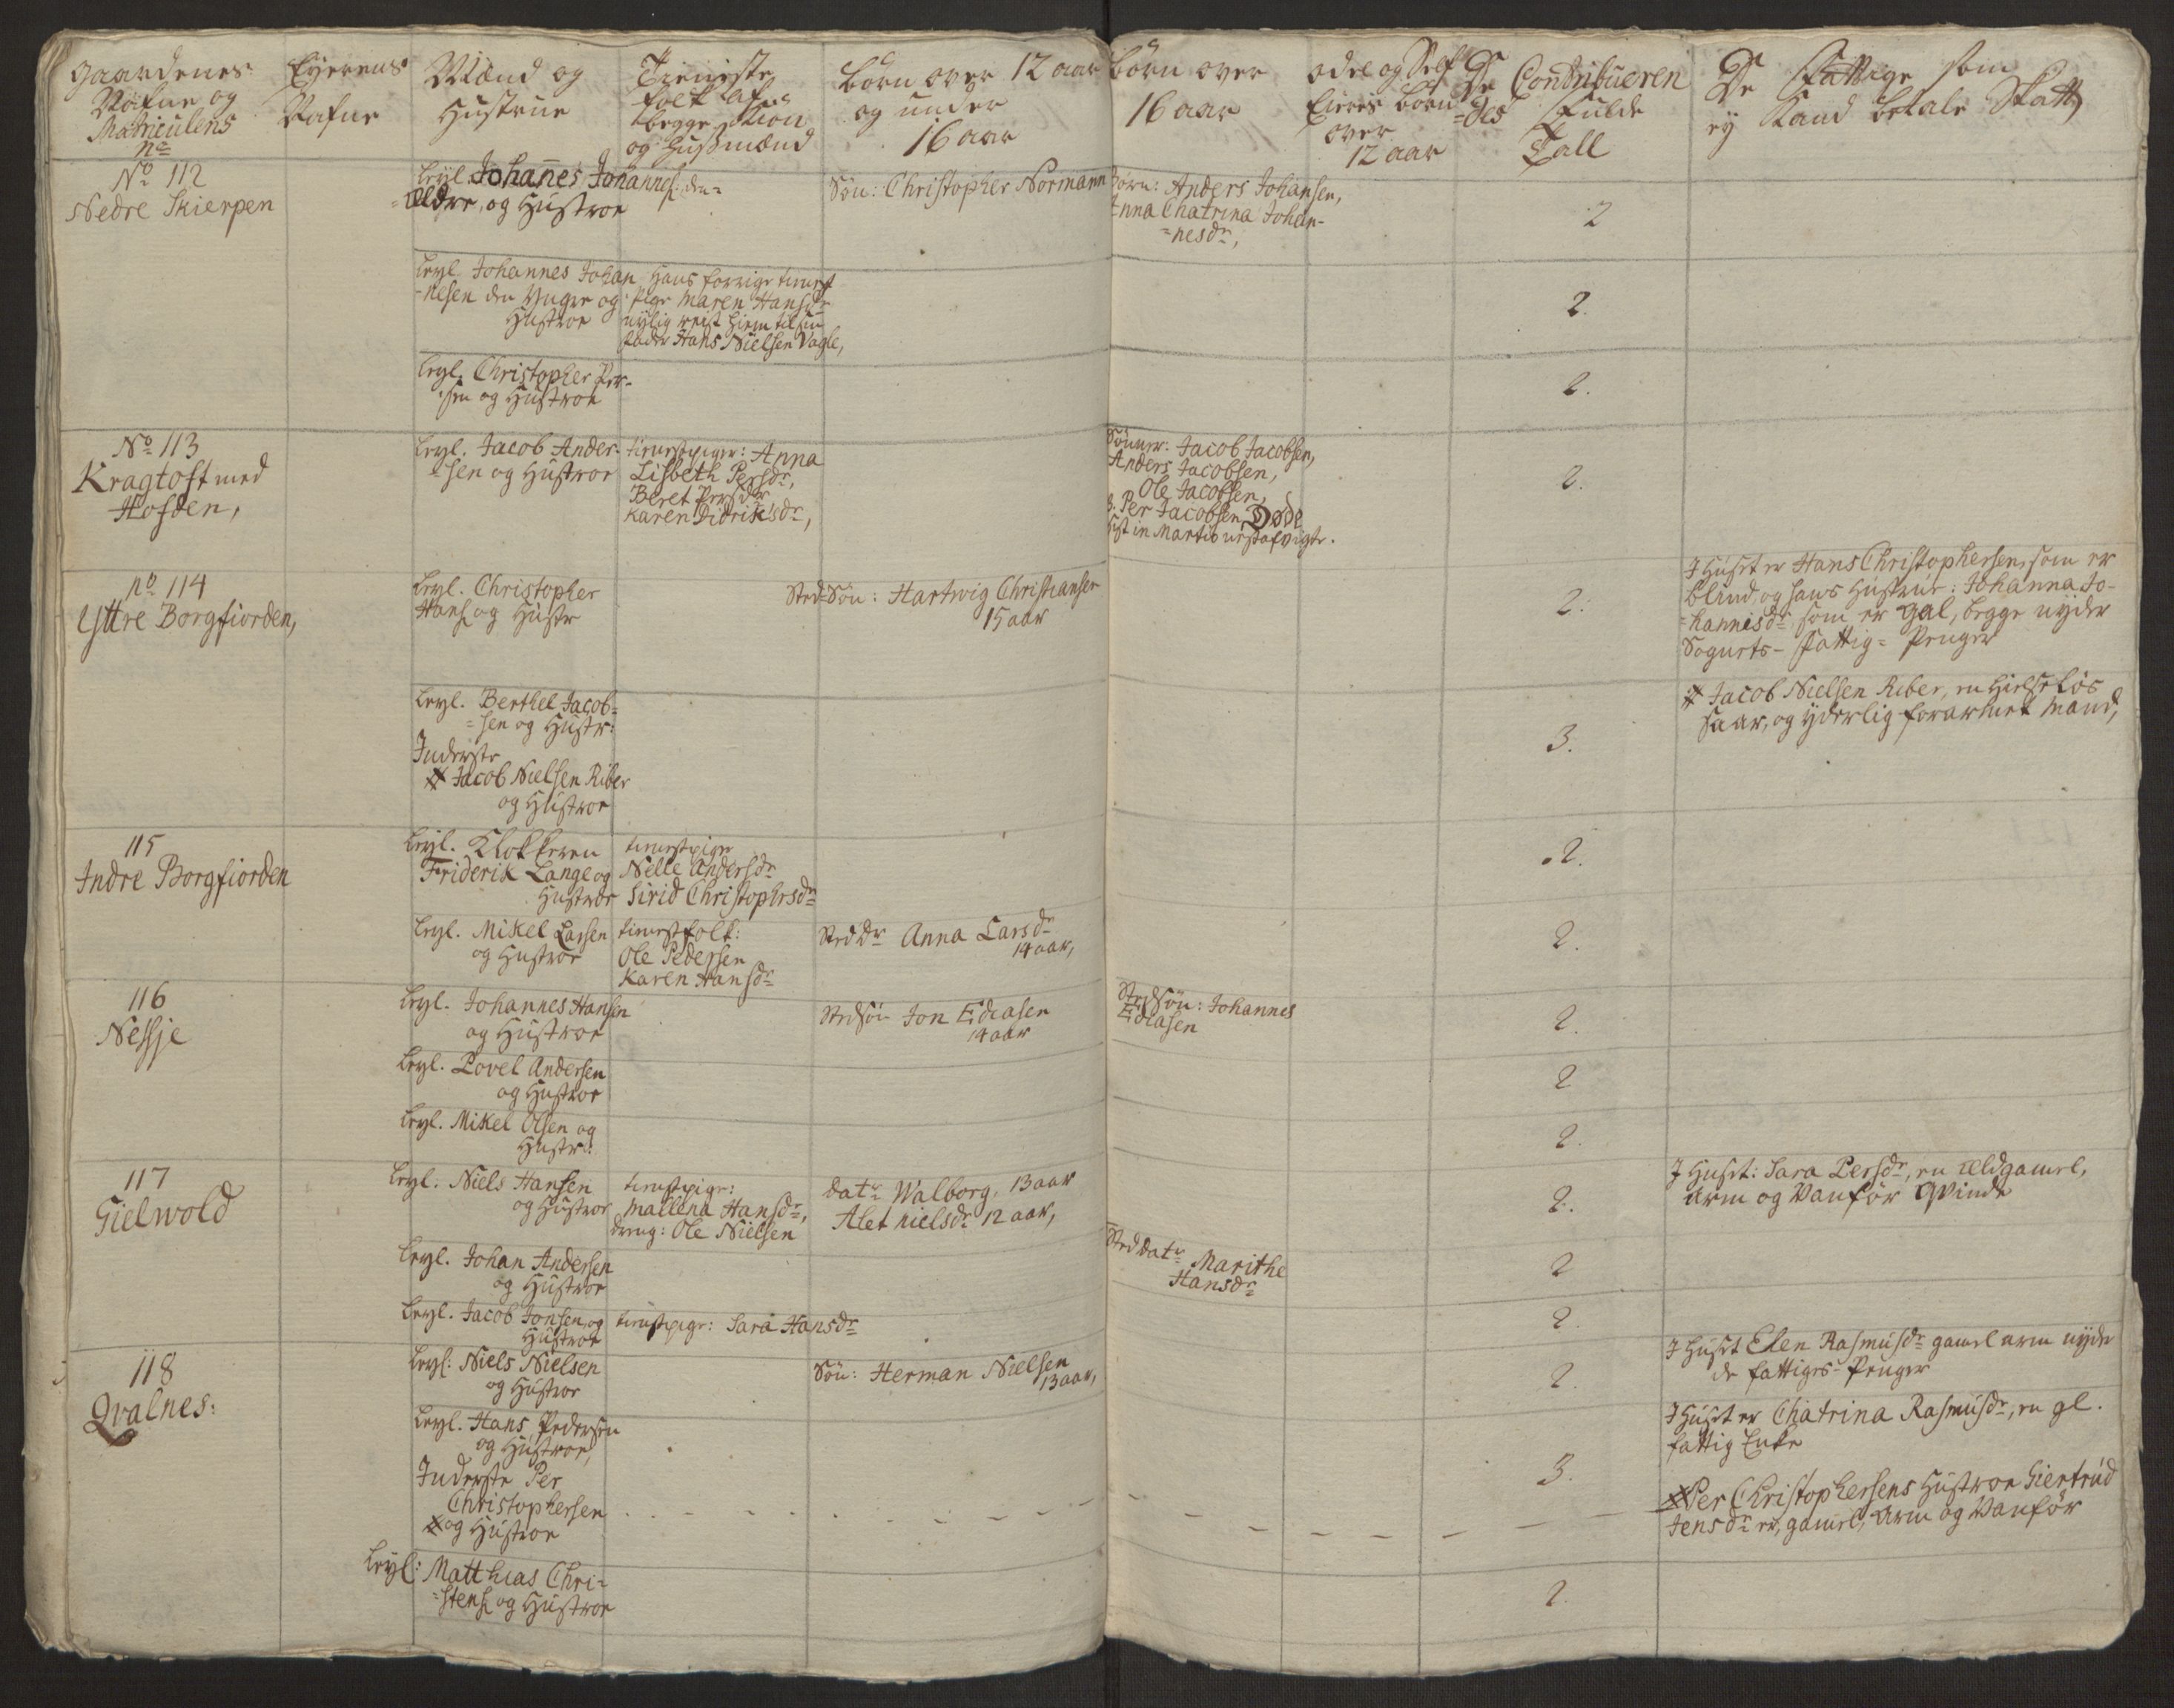 Gaardenes
Nafne og
Matriculens
No
Eyerens
Nafne
Mænd og
Hustrue
Tieniste
folk af
begge Kiøn
og Husmænd
børn over 12 aar
og under
16 aar
børn over
16 aar
odel og Self
Eieres børn
over
12 aar
De Contribueren
=des fulde
Tall
De Fattige som
ey Kand betale Skatt
No 112
Nedre Skierpen
Leyl. Johanes Johannes: den
=ældre, og Hustroe
Søn: Christopher Normann
børn: Anders Johansen,
Anna Chatrina Johan-
=nesdr,
2
Leyl. Johannes Johan
=nesen den Yngre og
Hustroe
Hans forrige tienest
pige Maren Hansdr
nylig reist hiem til sin
fader Hans Nielsen Vagle,
2.
Leyl. Christopher Per-
sen og Hustroe
2.
No 113
Kragtoft med
Hofden,
Leyl. Jacob Ander-
=sen og Hustroe
tienestpiger: Anna
Lisbeth Persdr,
Beret Persdr
Karen Didriksdr,
Sønner: Jacob Jacobsen,
Anders Jacobsen,
Ole Jacobsen,
Per Jacobsen, Døde
sist in Martio
2.
no 114
Yttre Borgfiorden,
Leyl. Christopher
Hans: og Hustr
Sted=Søn: Hartwig Christiansen
15 aar
2.
I Huset er Hans Christophersen, som er
blind, og hans Hustrue: Johanna Jo-
=hannisdr, som er gal, begge nyder
Sognets-fattig=Penger
Leyl. Berthel Jacob=
=sen og Hustr:
Inderste
# Jacob Nielsen Riber
og Hustroe
3.
# Jacob Nielsen Riber, en Hielseløs
Saar, og yderlig forarmet Mand,
115
Indre Borgfiorden
Leyl. Klokkeren
Friderik Lange og
Hustroe
tienestpiger
Nelle Andersdr
Sirid Christophrsdr
2.
Leyl. Mikel Larsen
og Hustroe
tienestfolk:
Ole Pedersen
Karen Hansdr
Sted Dr Anna Larsdr
14 aar,
2.
116
Nessje
Leyl. Johannes Hansen
og Hustroe
Stedsøn Jon Ediasen
14 aar
Stedsøn: Johannes
Ediasen
2.
Leyl. Povel Andersen
og Hustroe
2
Leyl. Mikel Olsen og
Hustr:
2.
117
Gielwold
Leyl. Niels Hansen
og Hustroe
tienstpige:
Mallena Hansdr,
dreng: Ole Nielsen
datr Walborg, 13 aar
Alet nielsdr 12 aar,
2.
I Huset: Sara Persdr, en ældgamel,
arm og Vanfør Qvinde
Leyl. Johan Andersen
og Hustroe
Sted datr Marithe
Hansdr
2
Leyl. Jacob Jonsen, og
Hustroe
tienstpige: Sara Hansdr
2.
118
Qvalnes:
Leyl: Niels Nielsen
og Hustroe
Søn: Herman Nielsen
13 aar,
2.
I Huset Elen Rasmusdr gamel arm nyde
de fattiges=Penger
Leyl. Hans Pedersen
og Hustroe,
Inderste Per
Christophersen
# og Hustroe
3.
I Huset er Chatrina Rasmusdr, en gl.
fattig Enke
# Per Christophersens Hustroe Giertrud
Jensdr er, gamel, arm og Vanfør
Leyl: Matthias Chri=
=stens: og Hustroe
2.